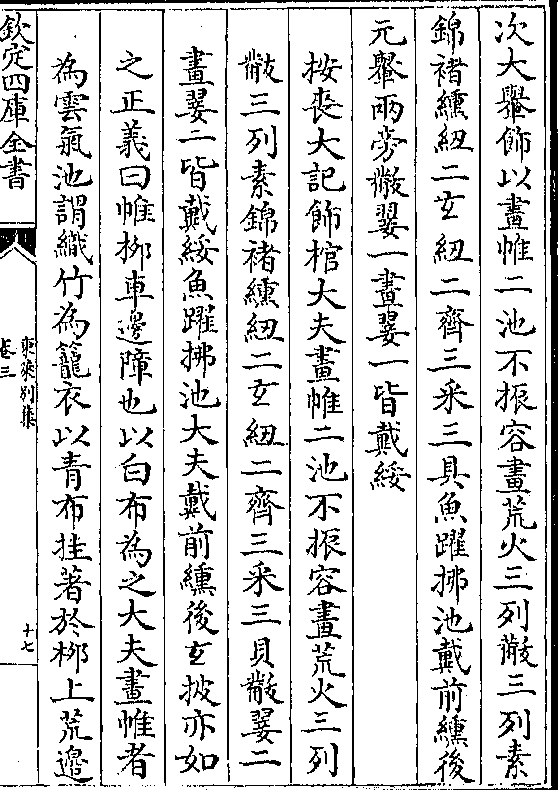 次大轝飾以畫帷二池不振容畫荒火三列黻三列素
錦褚纁紐二玄紐二齊三采三具魚躍拂池戴前纁後
元轝兩旁黻翣一畫翣一皆戴綏
按喪大記飾棺大夫畫帷二池不振容畫荒火三列
黻三列素錦褚纁紐二玄紐二齊三采三貝黻翣二
畫翣二皆戴綏魚躍拂池大夫戴前纁後玄披亦如
之正義曰帷柳車邊障也以白布為之大夫畫帷者
為雲氣池謂織竹為籠衣以青布挂著於柳上荒邉
欽定四庫全書
東萊別集
卷三
十七